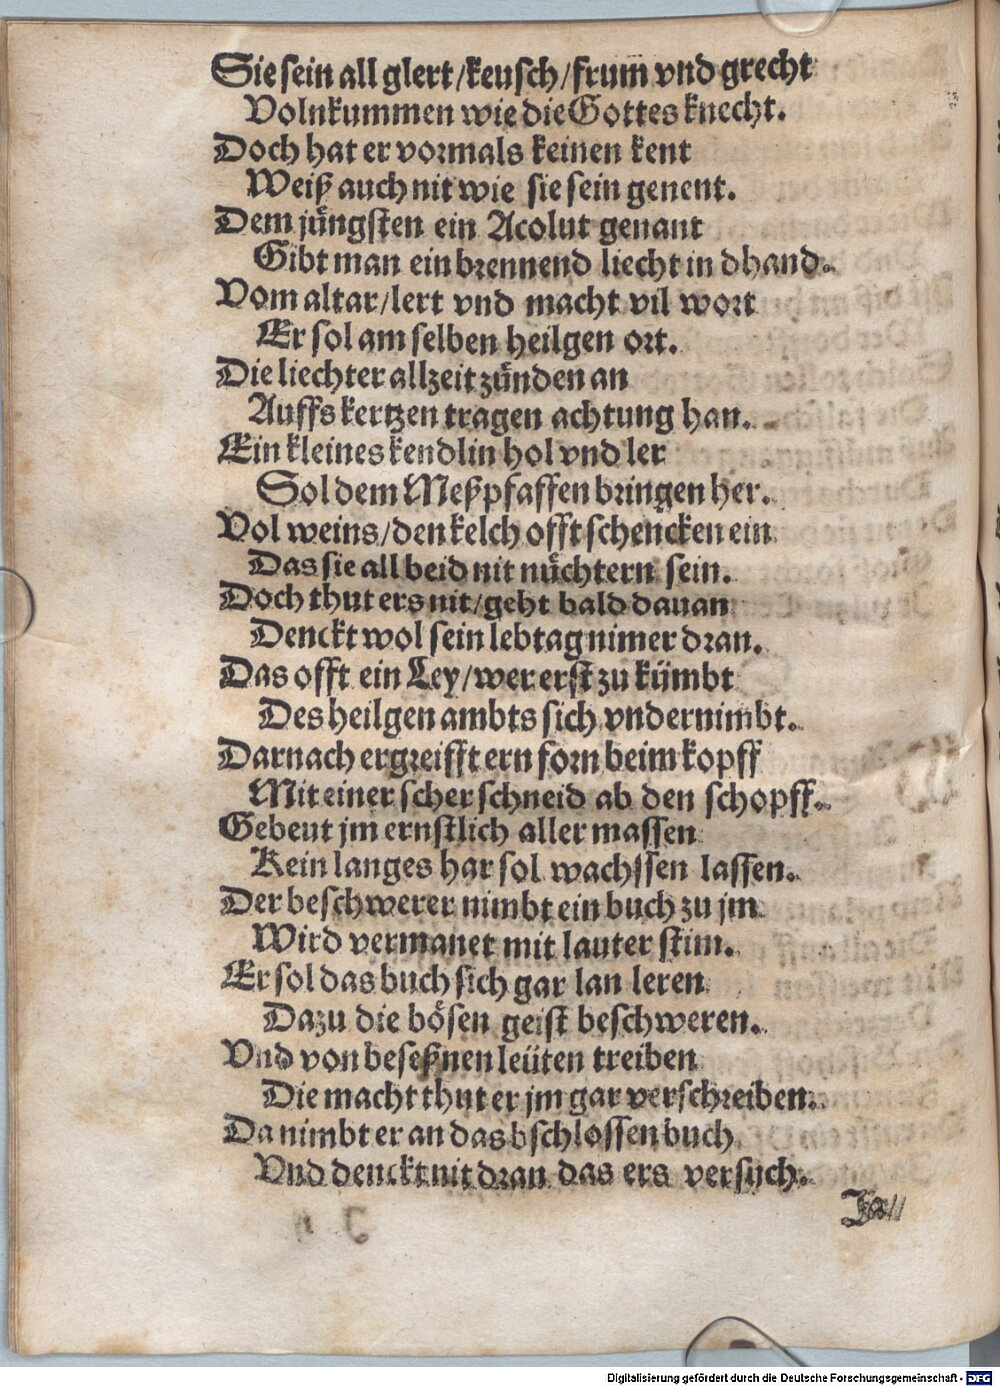 Sie sein all glert/keusch/frum̃ vnd grecht
Volnkummen wie die Gottes knecht.
Doch hat er vormals keinen kent
Weiß auch nit wie sie sein genent.
Dem jüngsten ein Acolut genant
Gibt man ein brennend liecht in dhand.
Vom altar/lert vnd macht vil wort
Er sol am selben heilgen ort.
Die liechter allzeit zünden an
Auffs kertzen tragen achtung han.
Ein kleines kendlin hol vnd ler
Sol dem Meßpfaffen bringen her.
Vol weins/den kelch offt schencken ein
Das sie all beid nit nüchtern sein.
Doch thut ers nit/geht bald dauan
Denckt wol sein lebtag nimer dran.
Das offt ein Ley/wer erst zu kümbt
Des heilgen ambts sich vndernimbt.
Darnach ergreifft ern forn beim kopff
Mit einer scher schneid ab den schopff.
Gebeut jm ernstlich aller massen
Kein langes har sol wachssen lassen.
Der beschwerer nimbt ein buch zu jm
Wird vermanet mit lauter stim.
Er sol das buch sich gar lan leren
Dazu die bösen geist beschweren.
Vnd von beseßnen leüten treiben
Die macht thut er jm gar verschreiben.
Da nimbt er an das bschlossen buch
Vnd denckt nit dran das ers versuch.
Digitalisierung gefördert durch die Deutsche Forschungsgemeinschaft - DFG